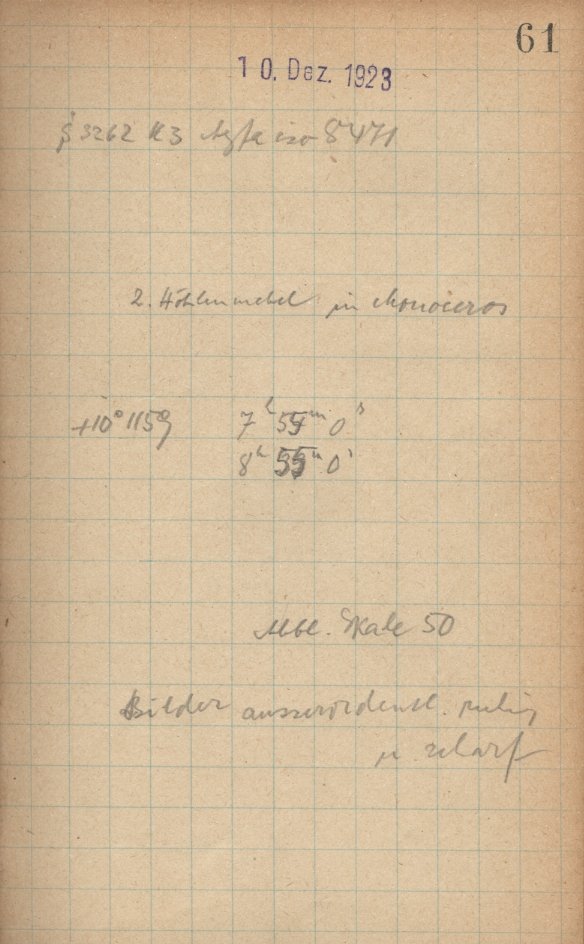 61
10. Dez. 1923
S 3262 K3 Agfa iso 5471
2. Höhlennebel in Monoceros
+10° 1159 7h 55m 0s
8h 55m 0s
Skale 50
Bilder ausserordentl. ruhig
u. scharf